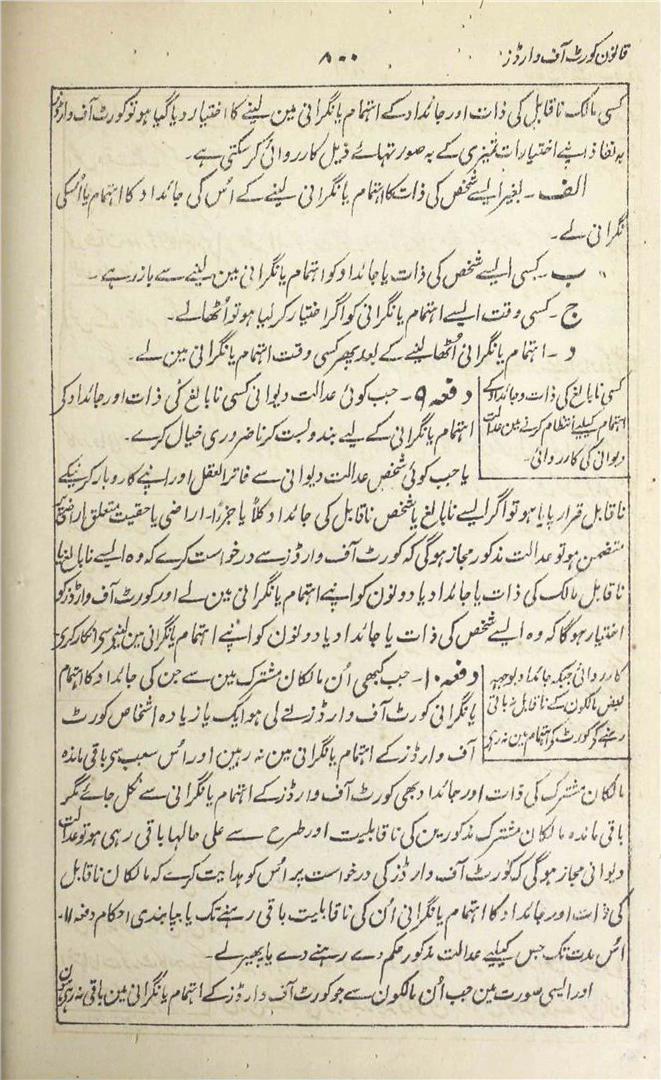 قانون کورٹ آف وارڈز
۸۰۰
کسی مالک ناقابل کی ذات اور جائداد کے اہتمام یا نگرانی مین لینے کا اختیار دیا گیا ہو تو کورٹ آف وارڈز
بہ نفاذ اپنے اختیارات تمیزی کے بہ صورتہائے ذیل کارروائی کر سکتی ہے۔
الف ۔ بغیر ایسے شخص کی ذات کا اہتمام یا نگرانی لینے کے اُس کی جائداد کا اہتمام یا اُسکی
نگرانی لے۔
ب ۔ کسی ایسے شخص کی ذات یا جائداد کو اہتمام یا نگرانی مین لینے سے باز رہے۔
ج ۔ کسی وقت ایسے اہتمام یا نگرانی کو اگر اختیار کر لیا ہو تو اُٹھالے۔
د ۔ اہتمام یا نگرانی اُٹھا لینے کے بعد پھر کسی وقت اہتمام یا نگرانی مین لے۔
کسی نابالغ کی ذات و جائداد کے
اہتمام کیلیے انتظام کرنے مین عدالت
دیوانی کی کارروائی۔
دفعہ ۹ ۔ جب کوئی عدالت دیوانی کسی نابالغ کی ذات اور جائداد کی
اہتمام یا نگرانی کے لیے بندوبست کرنا ضروری خیال کرے۔
یا جب کوئی شخص عدالت دیوانی سے فاتر العقل اور اپنے کاروبار کرنیکے
ناقابل قرار پایا ہو تو اگر ایسے نابالغ یا شخص ناقابل کی جائداد کلاً یا جزءًا۔ اراضی یا حقیت متعلق اراضی پر
متضمن ہو تو عدالت مذکور مجاز ہوگی کہ کورٹ آف وارڈز سے درخواست کرے کہ وہ ایسے نابالغ یا
ناقابل مالک کی ذات یا جائداد یا دونون کو اپنے اہتمام یا نگرانی مین لے اور کورٹ آف وارڈز کو
اختیار ہوگا کہ وہ ایسے شخص کی ذات یا جائداد یا دونون کو اپنے اہتمام یا نگرانی مین لینے سے انکار کرے
کارروائی جبکہ جائداد بوجہہ
بعض مالکون کے ناقابل نہ باقی
رہنے کے کورٹ کے اہتمام مین نہ رہے
دفعہ ۱۰ ۔ جب کبھی اُن مالکان مشترک مین سے جن کی جائداد کا اہتمام
یا نگرانی کورٹ آف وارڈز نے لی ہو ایک یا زیادہ اشخاص کورٹ
آف وارڈز کے اہتمام یا نگرانی مین نہ رہین اور اُس سبب سے باقی ماندہ
مالکان مشترک کی ذات اور جائداد بھی کورٹ آف وارڈز کے اہتمام یا نگرانی سے نکل جائے مگر
باقی ماندہ مالکان مشترک مذکورین کی ناقابلیت اور طرح سے علی حالہا باقی رہی ہو تو عدالت
دیوانی مجاز ہوگی کہ کورٹ آف وارڈز کی درخواست پر اُس کو ہدایت کرے کہ مالکان ناقابل
کی ذات اور جائداد کا اہتمام یا نگرانی اُن کی ناقابلیت باقی رہنے تک یا بپابندی احکام دفعہ ۱۱۔
اُس مدت تک جس کیلیے عدالت مذکور حکم دے رہنے دے یا پھیر لے۔
اور ایسی صورت مین جب اُن مالکون سے جو کورٹ آف وارڈز کے اہتمام یا نگرانی مین باقی نہ رہے